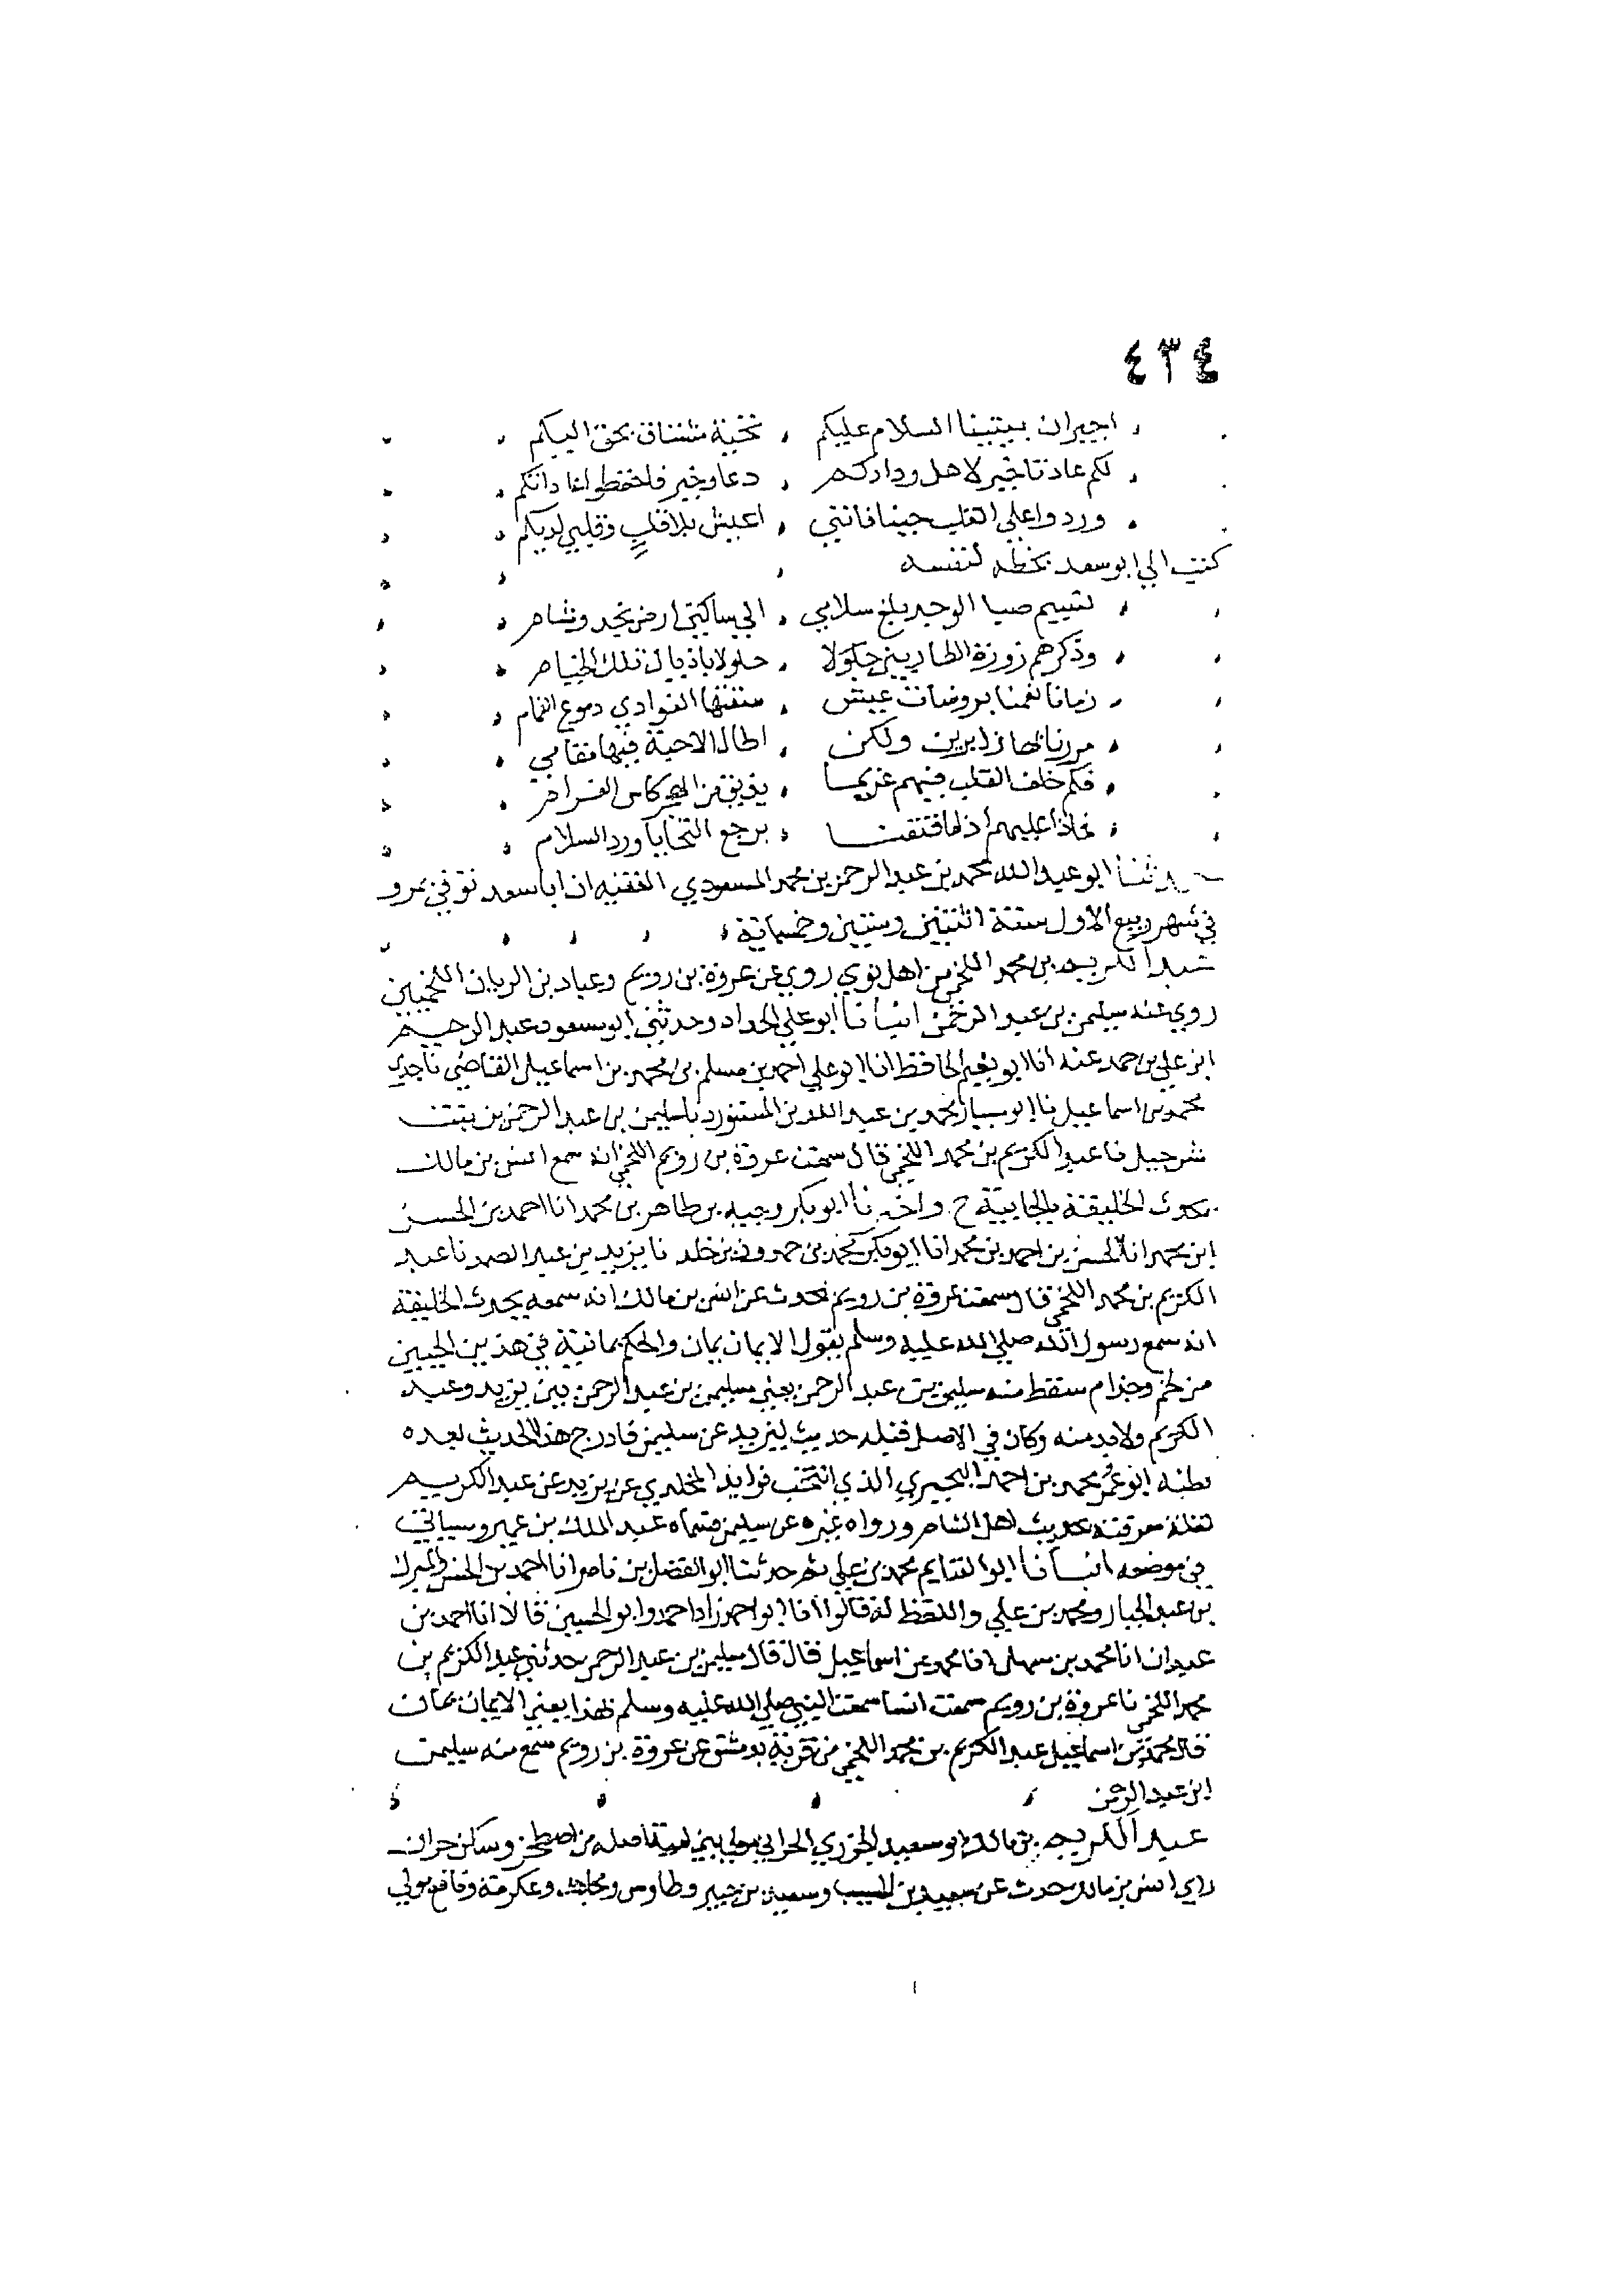 ٤٣٤
اجيران بيتينا السلام عليكم ، تحية مشتاق بحق اليكم
لكم عادتا خير لاهل ودادكم ، دعا وخير فاحفظوا عاداتكم
وردوا علي القلب حينا فانني ، اعيش بلا قلب وقلبي لديكم
كتب الي ابو سعد بخطه لنفسه
نسيم صبا الوجد بلغ سلامي ، الي ساكني ارض نجد وشام
وذكرهم زورة الطارقين حلولا ، حلولا باذيال تلك الخيام
زمانا نعمنا بروضات عيش ، سقتها الغوادي دموع الغمام
مررنا بها زايرين ولكن ، اطال الاحبة فيها مقامي
فكم خلف القلب فيهم غريما ، يذيق من الهجر كاس الغرام
فماذا عليهم اذا ما قنعنا ، برجع التحايا ورد السلام
حدثنا ابو عبد الله محمد بن عبد الرحمن بن محمد المسعودي الفقيه ان ابا سعد توفي بمرو
في شهر ربيع الاول سنة اثنتين وستين وخمسماية
عبد الكريم بن محمد اللخمي من اهل نوي روي عن عروة بن رويم وعباد بن الريان اللخميين
روي عنه سليمن بن عبد الرحمن انبانا ابو علي الحداد وحدثني ابو مسعود عبد الرحيم
ابن علي بن حمد عنه انا ابو نعيم الحافظ انا ابو علي احمد بن مسلم بن محمد بن اسماعيل القاضي نا جدي
محمد بن اسماعيل نا ابو سيار محمد بن عبد الله بن المستورد نا سليمن بن عبد الرحمن بن بنت
شرحبيل نا عبد الكريم بن محمد اللخمي قال سمعت عروة بن رويم اللخمي انه سمع انس بن مالك
يحدث الخليفة بالجابية ح واخبرنا ابو بكر وجيه بن طاهر بن محمد انا احمد بن الحسن
ابن محمد انا الحسن بن احمد بن محمد انا ابو بكر محمد بن حمدون بن خلد نا يزيد بن عبد الصمد نا عبد
الكريم بن محمد اللخمي قال سمعت عروة بن رويم يحدث عن انس بن مالك انه سمعه يحدث الخليفة
انه سمع رسول الله صلي الله عليه وسلم يقول الايمان يمان والحكم يمانية في هذين الحيين
من لخم وجذام سقط منه سليمن بن عبد الرحمن يعني سليمن بن عبد الرحمن بين يزيد وعبد
الكريم ولا بد منه وكان في الاصل قبله حديث ليزيد عن سليمن فادرج هذا الحديث بعده
فظنه ابو عمر محمد بن احمد البحيري الذي انتخب فوايد المخلدي عن يزيد عن عبد الكريم
لقلة معرفته بحديث اهل الشام ورواه غيره عن سليمن فسماه عبد الملك بن عمير وسياتي
في موضعه انبانا ابو الغنايم محمد بن علي ثم حدثنا ابو الفضل بن ناصر انا احمد بن الحسن والمبارك
بن عبد الجبار ومحمد بن علي واللفظ له قالوا انا ابو احمد زاد احمد وابو الحسين قالا انا احمد بن
عبدان انا محمد بن سهل انا محمد بن اسماعيل قال قال سليمن بن عبد الرحمن حدثني عبد الكريم بن
محمد اللخمي نا عروة بن رويم سمعت انسا سمعت النبي صلي الله عليه وسلم بهذا يعني الايمان يمان
قال محمد بن اسماعيل عبد الكريم بن محمد اللخمي من قرية بدمشق عن عروة بن رويم سمع منه سليمن
ابن عبد الرحمن
عبد الكريم بن مالك ابو سعيد الجزري الحراني مولي بني امية اصله من اصطخر وسكن حران
راي انس بن مالك وحدث عن سعيد بن المسيب وسعيد بن جبير وطاوس ومجاهد وعكرمة ونافع مولي